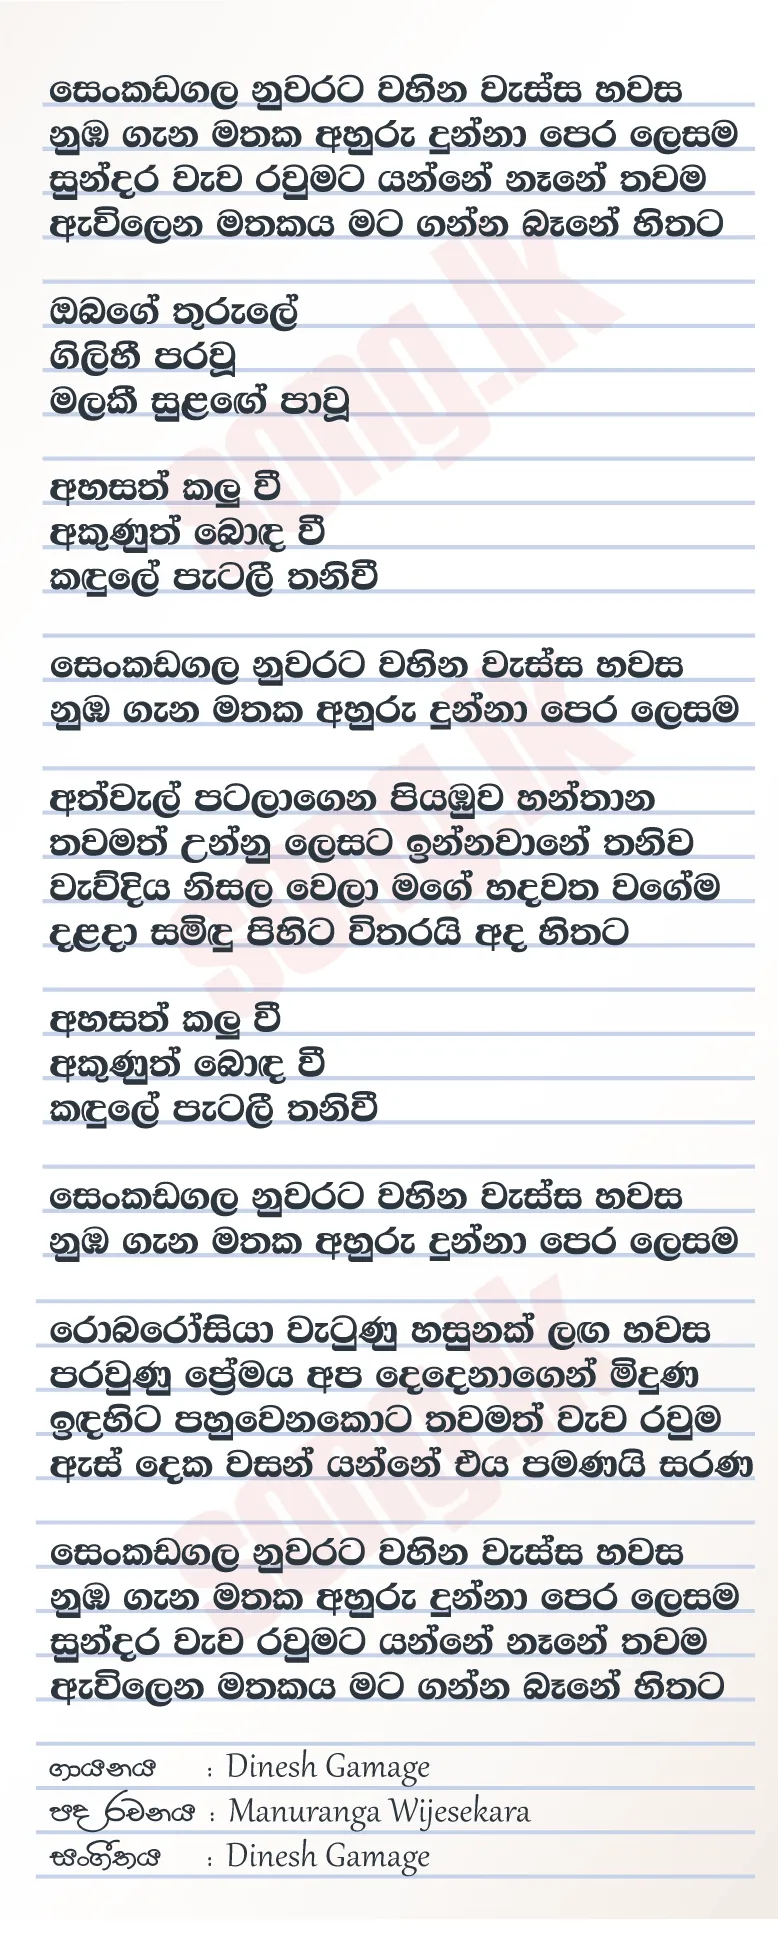 සෙංකඩගල නුවරට වහින වැස්ස හවස
නුඹ ගැන මතක අහුරු දුන්නා පෙර ලෙසම
සුන්දර වැව රවුමට යන්නේ නෑනේ තවම
ඇවිලෙන මතකය මට ගන්න බෑනේ හිතට
ඔබගේ තුරුලේ
ගිලිහී පරවූ
මලකී සුළඟේ පාවූ
අහසත් කලු වී
අකුණුත් බොඳ වී
කඳුලේ පැටලී තනිවී
සෙංකඩගල නුවරට වහින වැස්ස හවස
නුඹ ගැන මතක අහුරු දුන්නා පෙර ලෙසම
අත්වැල් පටලාගෙන පියඹුව හන්තාන
තවමත් උන්නු ලෙසට ඉන්නවානේ තනිව
වැව්දිය නිසල වෙලා මගේ හදවත වගේම
දළදා සමිඳු පිහිට විතරයි අද හිතට
අහසත් කලු වී
අකුණුත් බොඳ වී
කඳුලේ පැටලී තනිවී
සෙංකඩගල නුවරට වහින වැස්ස හවස
නුඹ ගැන මතක අහුරු දුන්නා පෙර ලෙසම
රොබරෝසියා වැටුණු හසුනක් ලඟ හවස
පරවුණු ප්‍රේමය අප දෙදෙනාගෙන් මිදුණ
ඉඳහිට පහුවෙනකොට තවමත් වැව රවුම
ඇස් දෙක වසන් යන්නේ එය පමණයි සරණ
සෙංකඩගල නුවරට වහින වැස්ස හවස
නුඹ ගැන මතක අහුරු දුන්නා පෙර ලෙසම
සුන්දර වැව රවුමට යන්නේ නෑනේ තවම
ඇවිලෙන මතකය මට ගන්න බෑනේ හිතට
ගායනය : Dinesh Gamage
පද රචනය : Manuranga Wijesekara
සංගීතය : Dinesh Gamage
song.lk
song.lk
song.lk